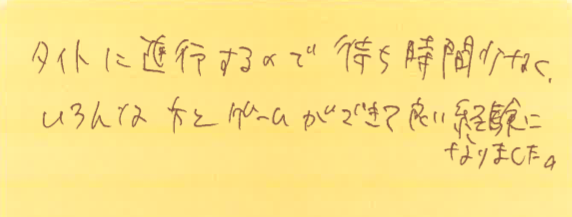 タイトに進行するので待ち時間少なく、
いろんな方とゲームができて良い経験に
なりました。